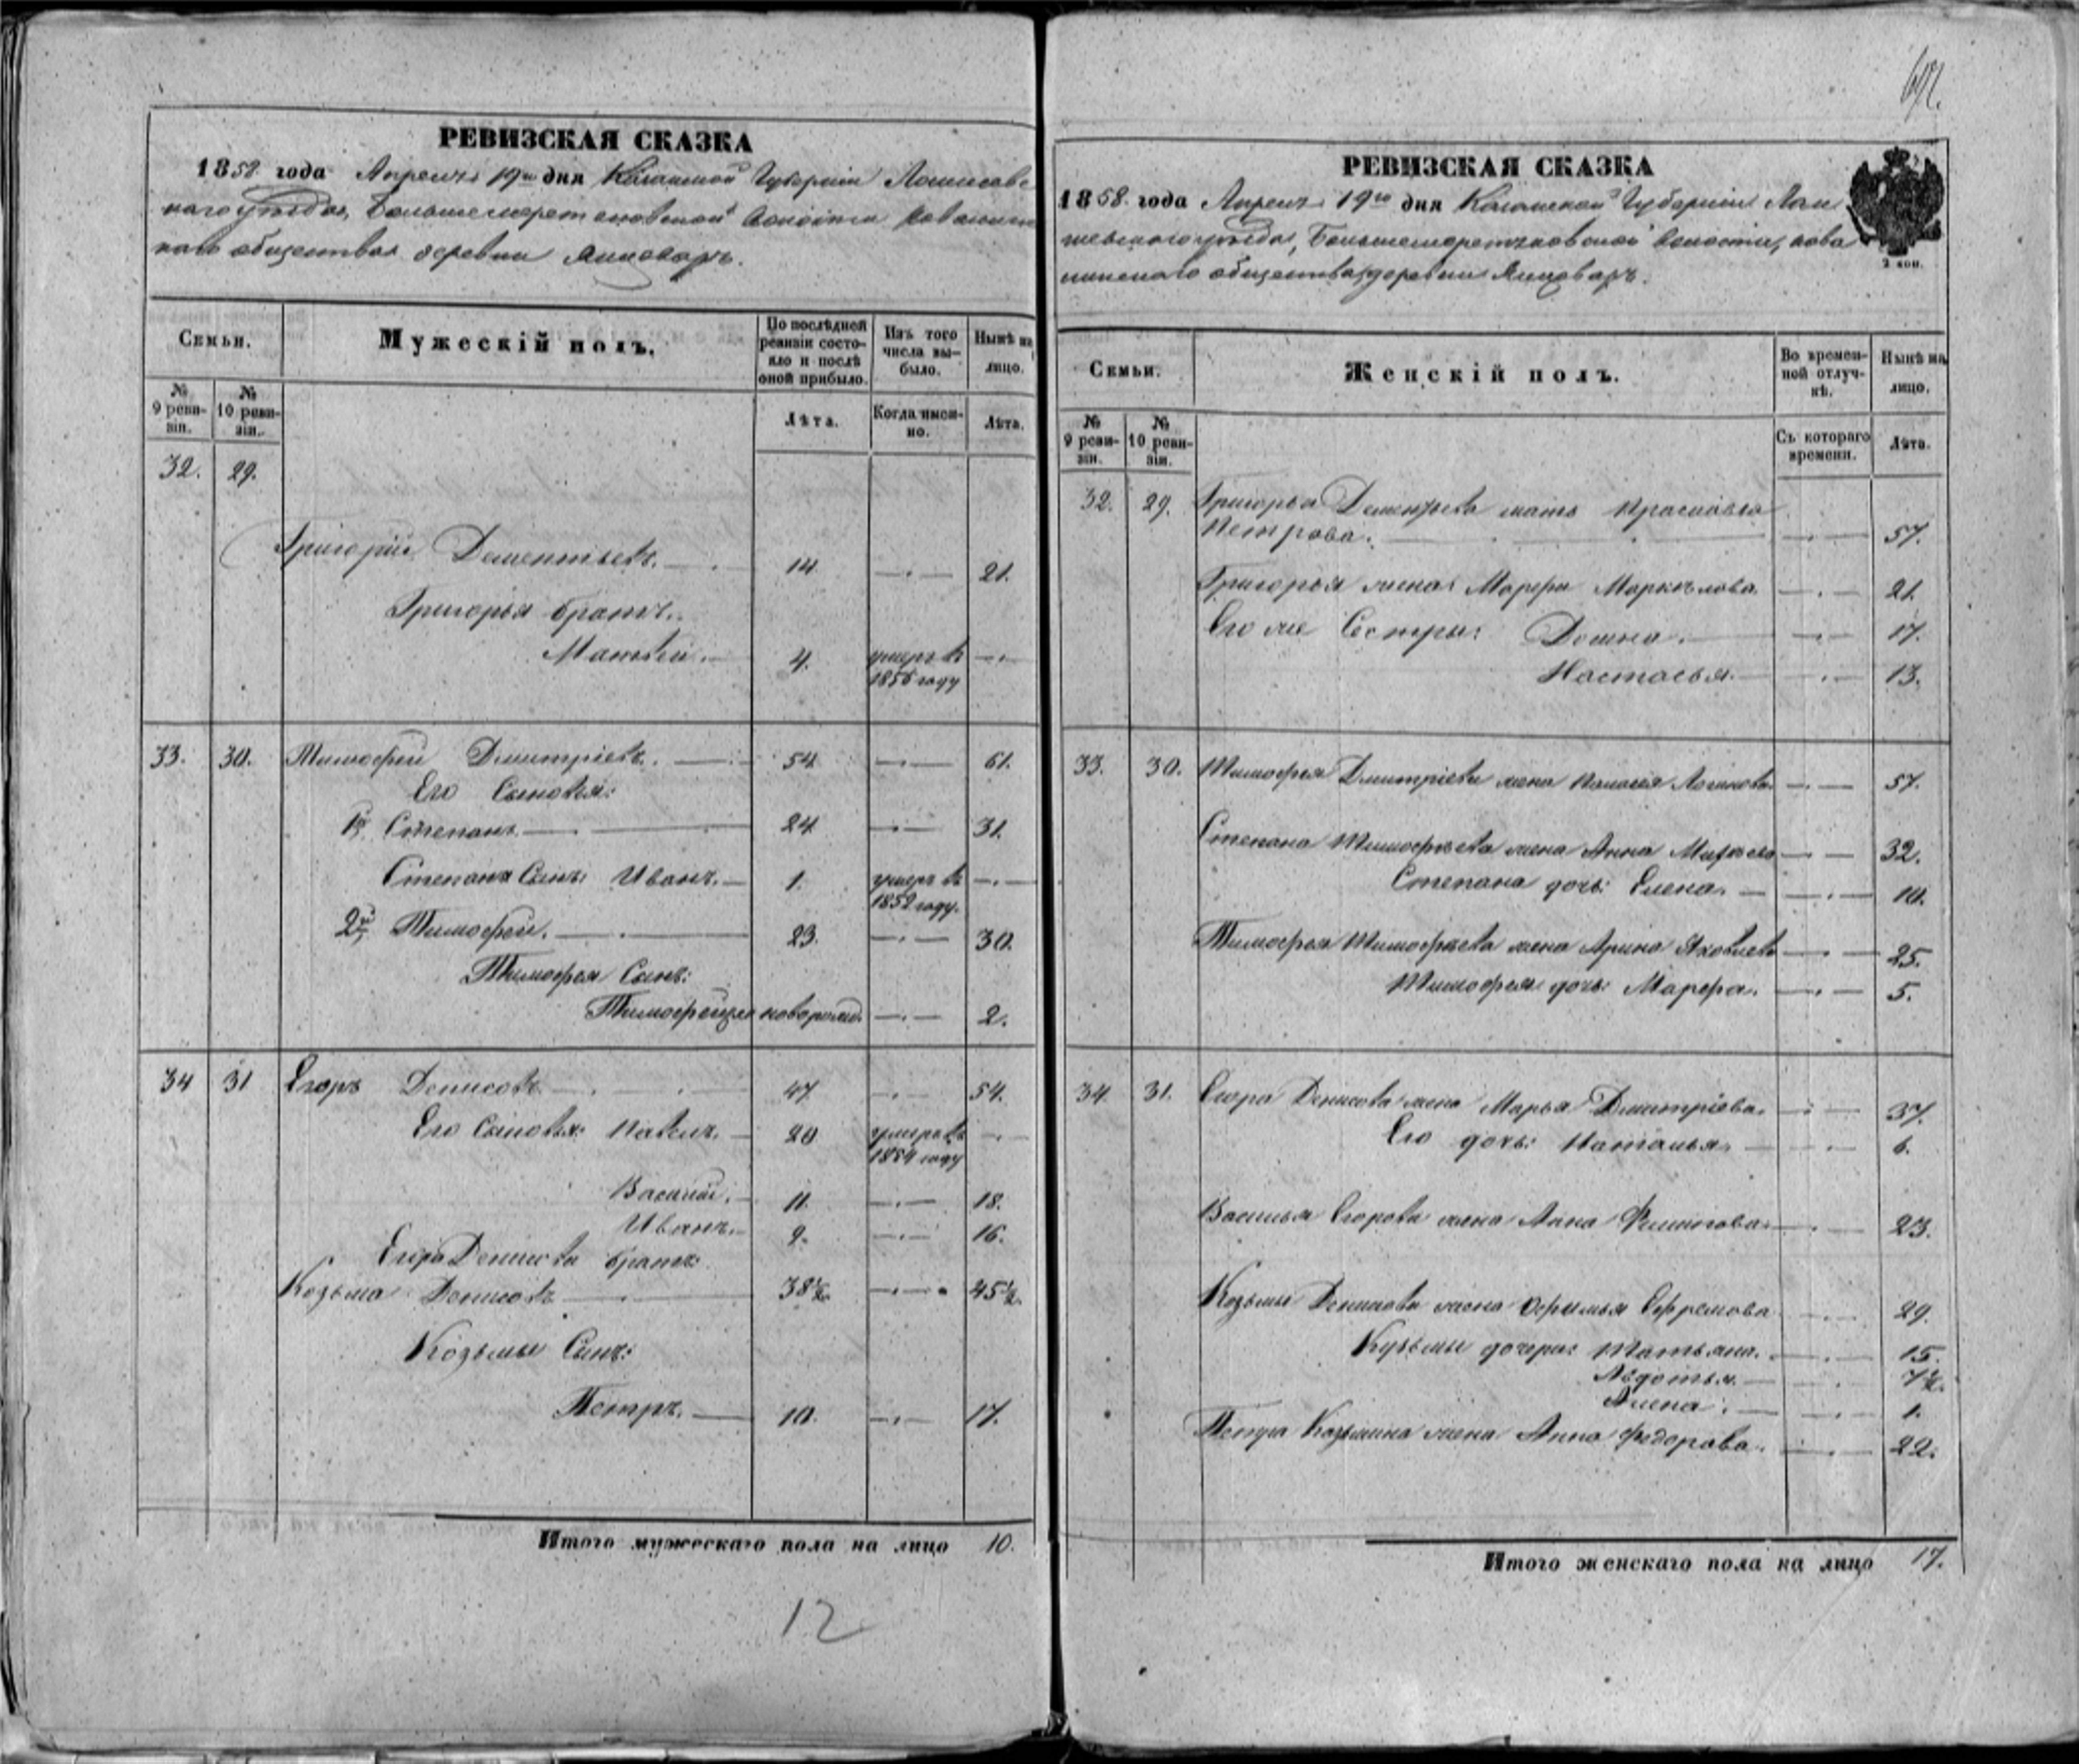 РЕВИЗСКАЯ СКАЗКА
1858 года Апреля 19го дня Казанской Губернiи Лаишевс
каго уѣзда, Большемеретяковской Волости
каго общества деревни Янцоваръ.
Семьи.
Мужескiй полъ.
По послѣдней ревизiи состояло и послѣ оной прибыло.
Изъ того числа выбыло.
Нынѣ на лицо.
№ 9 ревизiи.
№ 10 ревизiи.
Лѣта.
Когда именно.
Лѣта.
32. 29.
Григорiй Дементьевъ. 14 21.
Григорья братъ.
Матвей. 4. умеръ въ 1856 году
33. 30. Тимофей Дмитрiевъ. 54 61.
Его Сыновья:
1й Степанъ 24 31.
Степана Сынъ: Иванъ. 1. умеръ въ 1852 году.
2й Тимофей. 23. 30.
Тимофея Сынъ:
Тимофей новорожд. 2.
34 31 Егоръ Денисовъ 47 54.
Его Сыновья: Павелъ. 20 умеръ въ 1854 году
Василiй. 11. 18.
Иванъ. 9. 16.
Егора Денисова братъ
Козьма Денисовъ 38½. 45½.
Козьмы Сынъ:
Петръ. 10. 17.
Итого мужескаго пола на лицо 10.
12
РЕВИЗСКАЯ СКАЗКА
1858 года Апреля 19го дня Казанской Губернiи Лаи
шевскаго уѣзда, Большемеретяковской Волости, кова
линскаго общества деревни Янцоваръ.
2 коп.
Семьи.
Женскiй полъ.
Во временной отлучкѣ.
Нынѣ на лицо.
№ 9 ревизiи.
№ 10 ревизiи.
Съ котораго времени.
Лѣта.
32. 29. Григорья Дементьева мать Прасковья
Петрова. 57.
Григорья жена Марфа 21.
Его же Сестры: Домна. 17.
Настасья. 13.
33. 30. Тимофея Дмитрiева жена Логинова 57.
Степана Тимофѣева жена Анна 32.
Степана дочь: Елена. 10.
Тимофея Тимофѣева жена Арина Яковлева 25.
Тимофея дочь: Марфа. 5.
34 31. Егора Денисова жена Марья Дмитрiева. 37.
Его дочь: Наталья 6.
Василья Егорова жена Анна Филипова 23.
Козьмы Денисова жена Офимья Ефремова 29.
Кузьмы дочери: Татьяна. 15.
Авдотья 7½.
Алена. 1.
Петра Козьмина жена Анна Федорова. 22.
Итого женскаго пола на лицо 17.